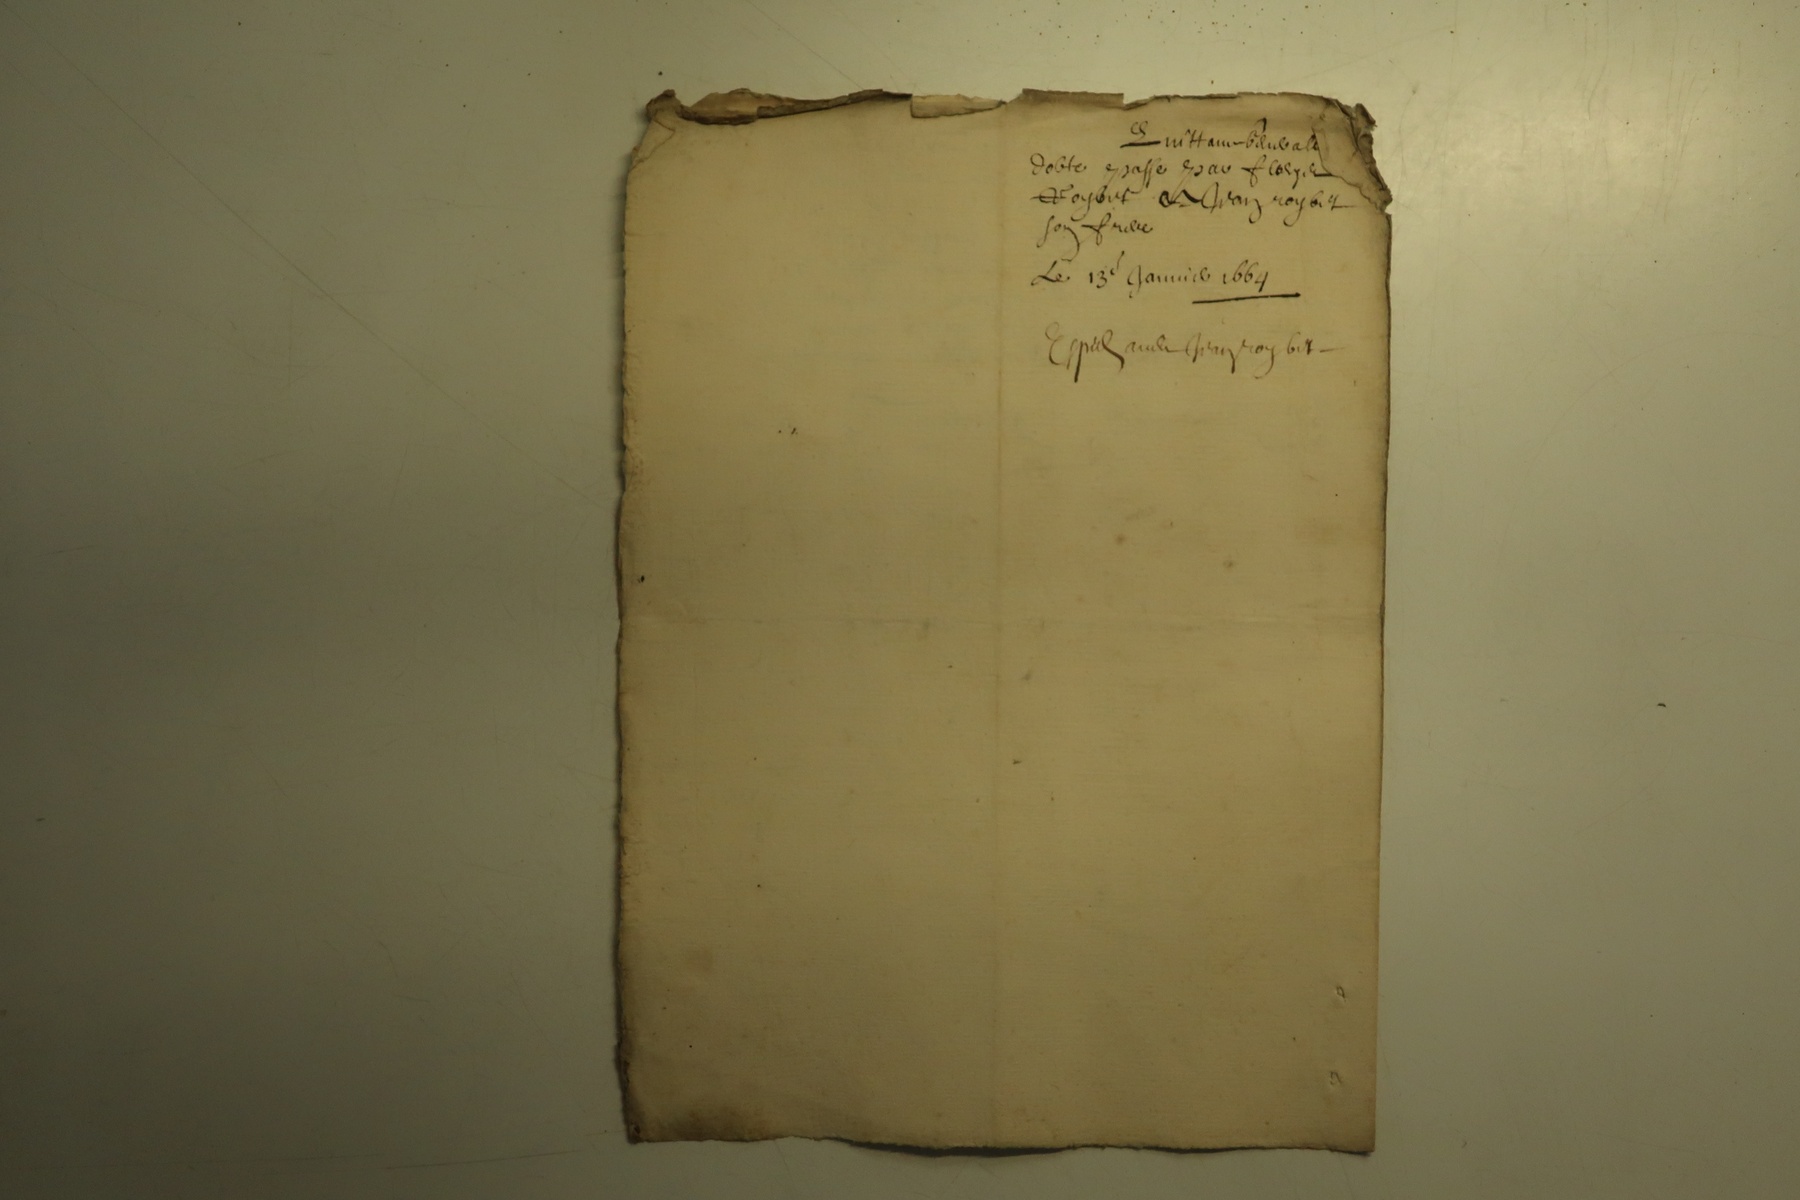 Quittance generale
dobte passe par fleurie
Roybet & Jean roybet
son frere
Le 13e Janvier 1664
Expedie audit Jean roybet